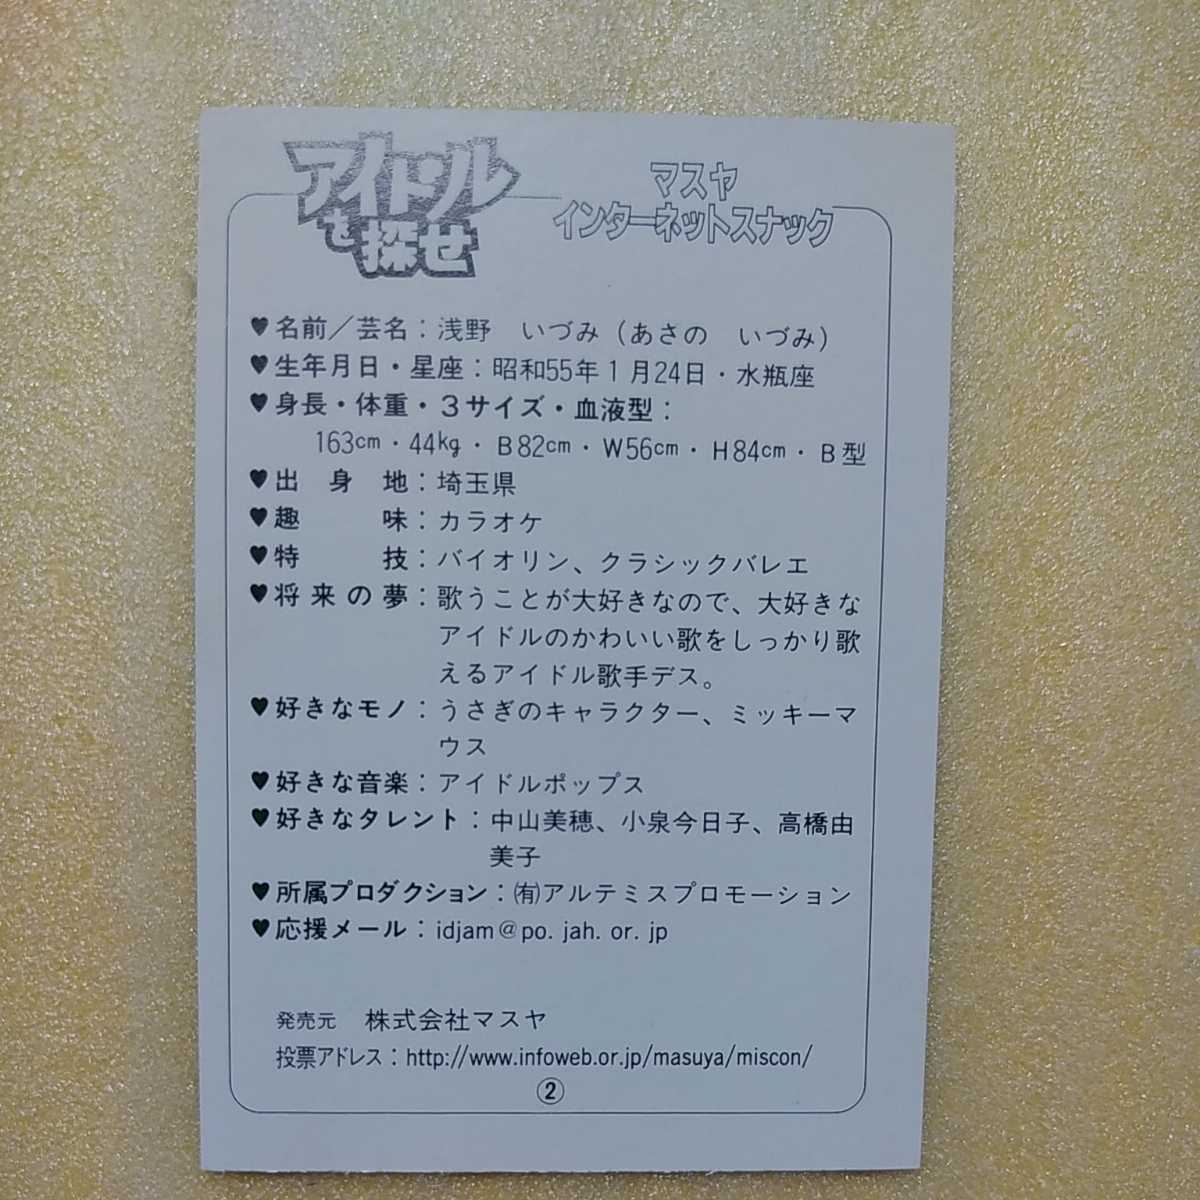 アイドル
を探せ
マスヤ
インターネットスナック
♥名前／芸名：浅野　いづみ（あさの　いづみ）
♥生年月日・星座：昭和55年１月24日・水瓶座
♥身長・体重・３サイズ・血液型：
163cm・44kg・Ｂ82cm・Ｗ56cm・Ｈ84cm・Ｂ型
♥出身地：埼玉県
♥趣味：カラオケ
♥特技：バイオリン、クラシックバレエ
♥将来の夢：歌うことが大好きなので、大好きな
アイドルのかわいい歌をしっかり歌
えるアイドル歌手デス。
♥好きなモノ：うさぎのキャラクター、ミッキーマ
ウス
♥好きな音楽：アイドルポップス
♥好きなタレント：中山美穂、小泉今日子、高橋由
美子
♥所属プロダクション：㈲アルテミスプロモーション
♥応援メール：idjam@po. jah. or. jp
発売元　株式会社マスヤ
投票アドレス：http://www.infoweb.or.jp/masuya/miscon/
②